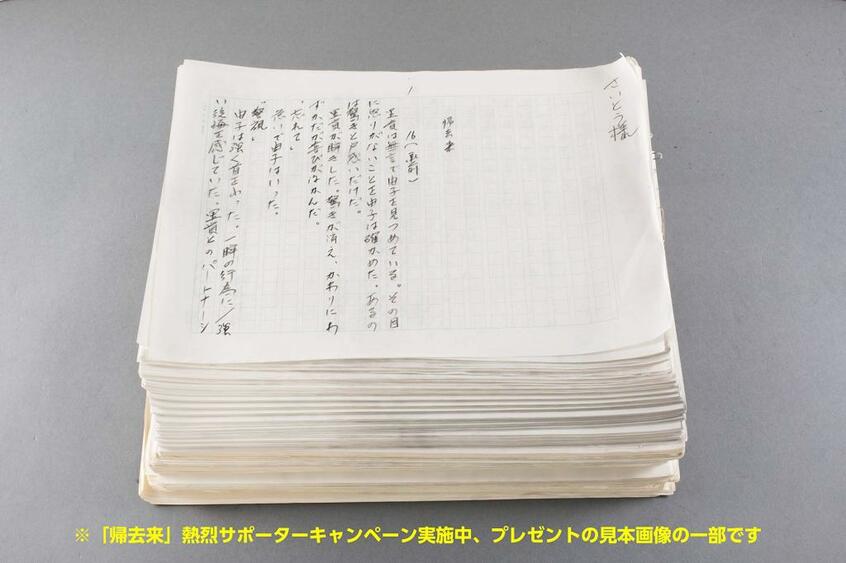 さいとう様
1
帰去来
16(承前)
里貢は無言で由子を見つめている。その目
に怒りがないことを由子は確かめた。あるの
は驚きと戸惑いだけだ。
里貢が瞬きした。驚きが消え、かわりにわ
ずかだが喜びがはかんだ。
「忘れて」
急いで由子はいった。
「警視」
由子は強く首をふった。一瞬の行為に、強
い後悔を感じていた。里貢とのパートナーシ
※「帰去来」熱烈サポーターキャンペーン実施中、プレゼントの見本画像の一部です